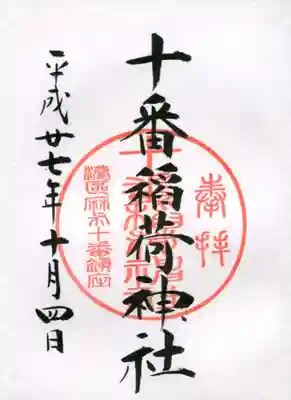 奉拝
十番稲荷神社
港区麻布十番鎮座
平成廿七年十月四日